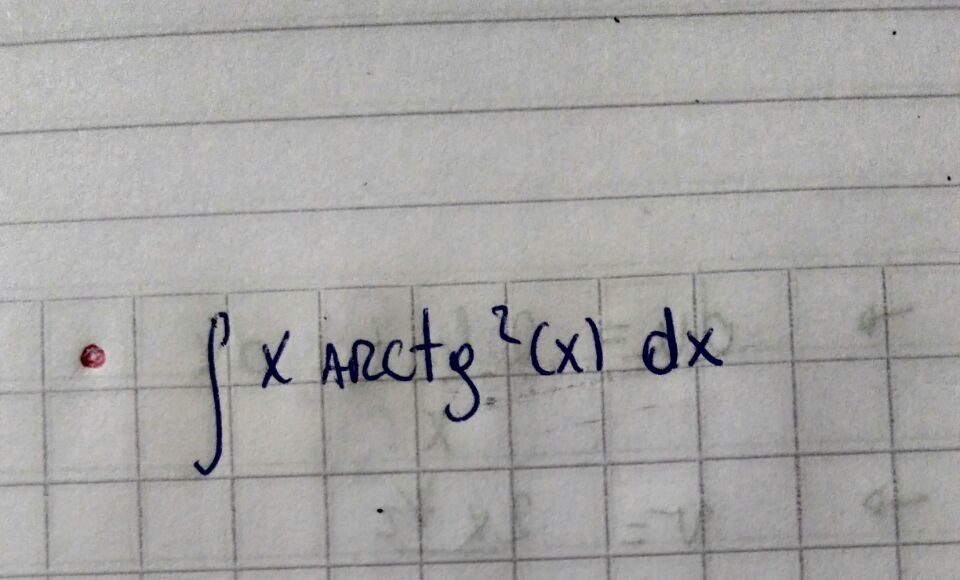 ∫ x ARCtg²(x) dx